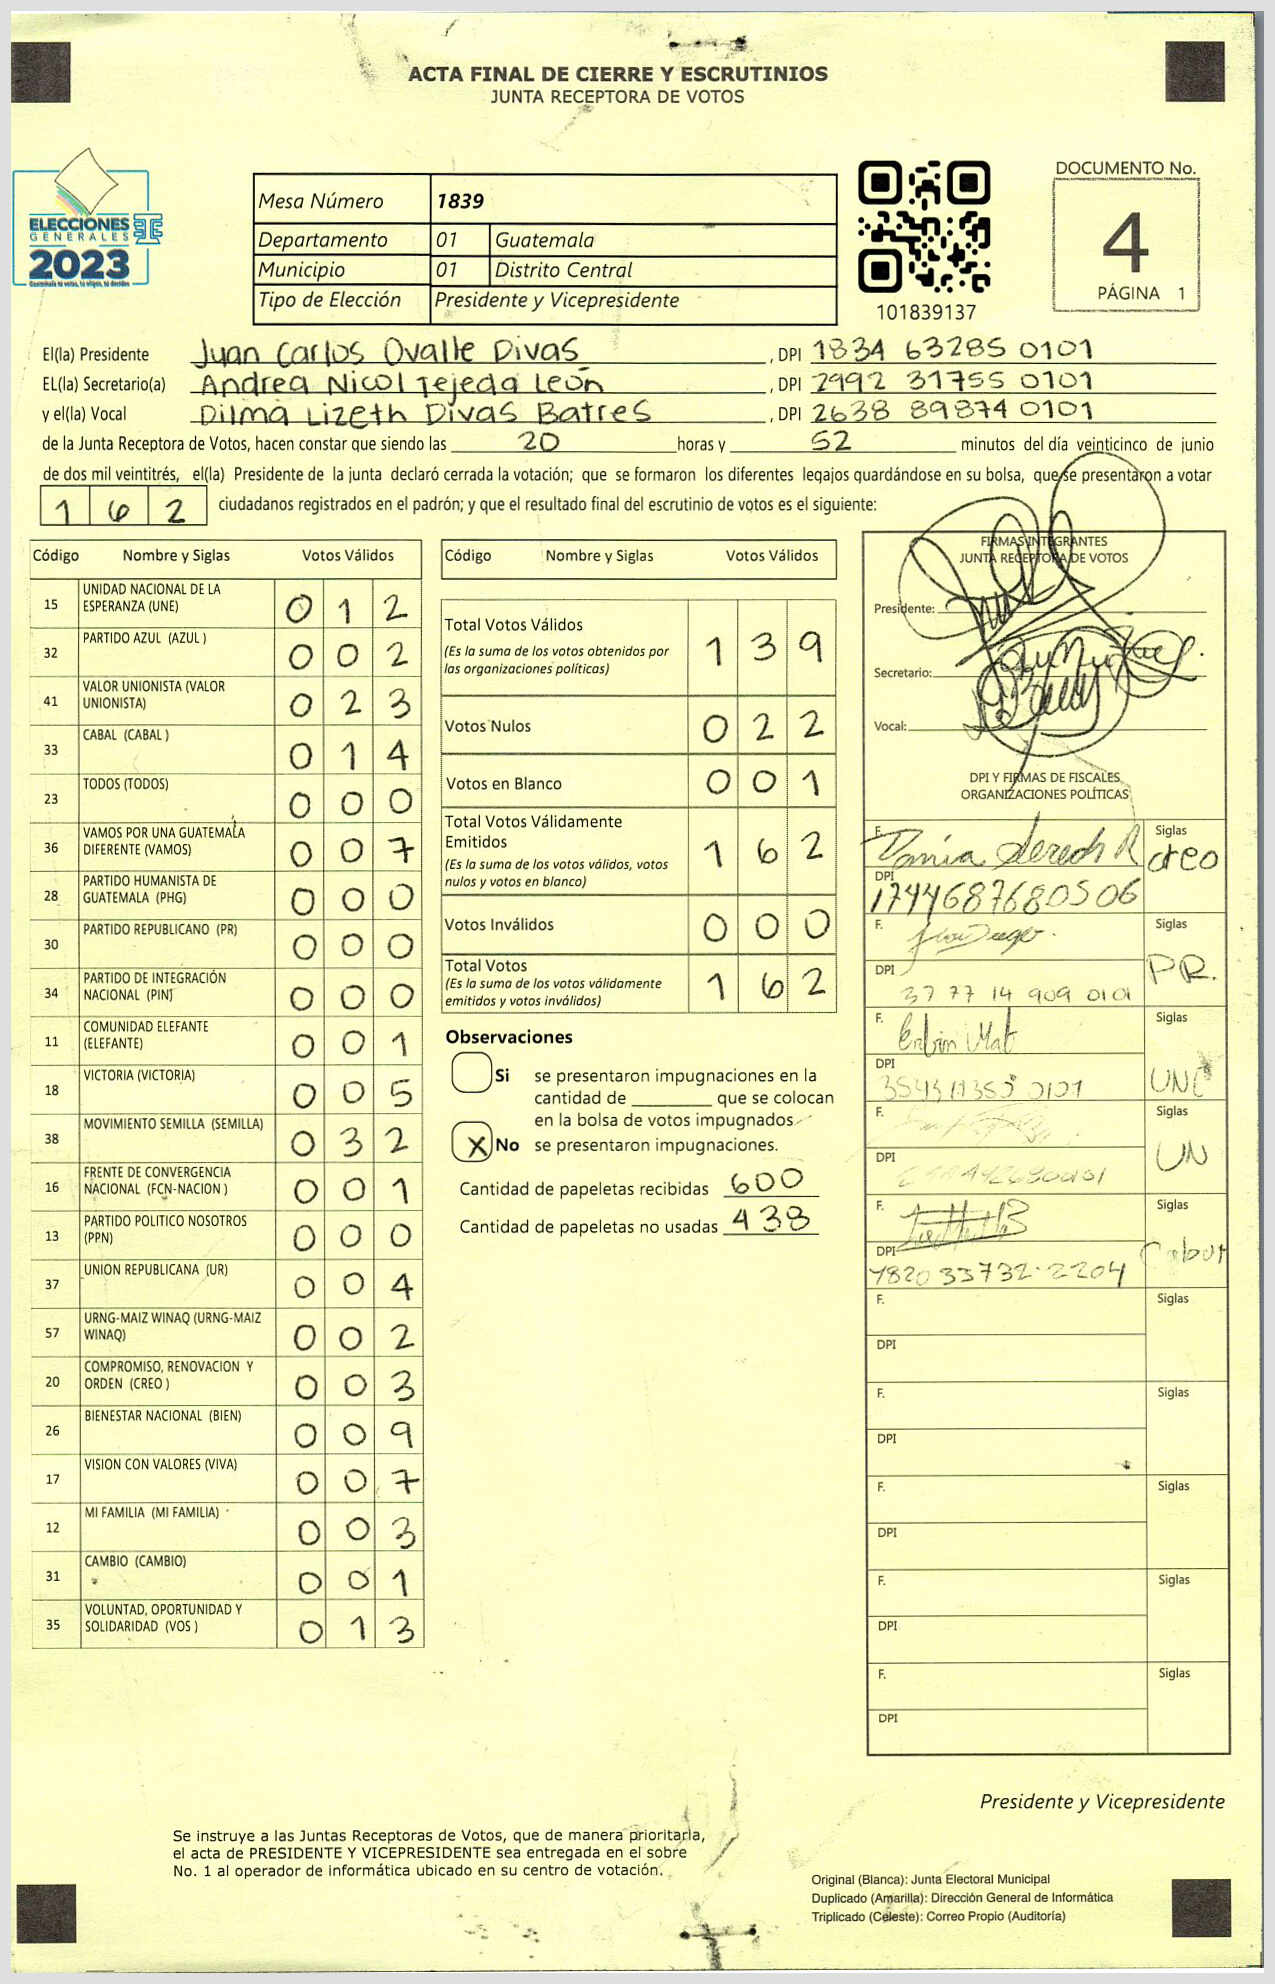 ACTA FINAL DE CIERRE Y ESCRUTINIOS
JUNTA RECEPTORA DE VOTOS
ELECCIONES
GENERALES
2023
Guatemala tú votas, tú eliges, tú decides
Mesa Número 1839
Departamento 01 Guatemala
Municipio 01 Distrito Central
Tipo de Elección Presidente y Vicepresidente
101839137
DOCUMENTO No.
4
PÁGINA 1
El(la) Presidente Juan Carlos Ovalle Divas, DPI 1834 63285 0101
EL(la) Secretario(a) Andrea Nicol Tejeda León, DPI 2992 31755 0101
y el(la) Vocal Dilma Lizeth Divas Batres, DPI 2638 89874 0101
de la Junta Receptora de Votos, hacen constar que siendo las 20 horas y 52 minutos del día veinticinco de junio
de dos mil veintitrés, el(la) Presidente de la junta declaró cerrada la votación; que se formaron los diferentes legajos guardándose en su bolsa, que se presentaron a votar
162 ciudadanos registrados en el padrón; y que el resultado final del escrutinio de votos es el siguiente:
Código Nombre y Siglas Votos Válidos
15 UNIDAD NACIONAL DE LA ESPERANZA (UNE) 0 1 2
32 PARTIDO AZUL (AZUL ) 0 0 2
41 VALOR UNIONISTA (VALOR UNIONISTA) 0 2 3
33 CABAL (CABAL ) 0 1 4
23 TODOS (TODOS) 0 0 0
36 VAMOS POR UNA GUATEMALA DIFERENTE (VAMOS) 0 0 7
28 PARTIDO HUMANISTA DE GUATEMALA (PHG) 0 0 0
30 PARTIDO REPUBLICANO (PR) 0 0 0
34 PARTIDO DE INTEGRACIÓN NACIONAL (PIN) 0 0 0
11 COMUNIDAD ELEFANTE (ELEFANTE) 0 0 1
18 VICTORIA (VICTORIA) 0 0 5
38 MOVIMIENTO SEMILLA (SEMILLA) 0 3 2
16 FRENTE DE CONVERGENCIA NACIONAL (FCN-NACION ) 0 0 1
13 PARTIDO POLITICO NOSOTROS (PPN) 0 0 0
37 UNION REPUBLICANA (UR) 0 0 4
57 URNG-MAIZ WINAQ (URNG-MAIZ WINAQ) 0 0 2
20 COMPROMISO, RENOVACION Y ORDEN (CREO ) 0 0 3
26 BIENESTAR NACIONAL (BIEN) 0 0 9
17 VISION CON VALORES (VIVA) 0 0 7
12 MI FAMILIA (MI FAMILIA) 0 0 3
31 CAMBIO (CAMBIO) 0 0 1
35 VOLUNTAD, OPORTUNIDAD Y SOLIDARIDAD (VOS ) 0 1 3
Código Nombre y Siglas Votos Válidos
Total Votos Válidos 1 3 9
(Es la suma de los votos obtenidos por
las organizaciones políticas)
Votos Nulos 0 2 2
Votos en Blanco 0 0 1
Total Votos Válidamente
Emitidos 1 6 2
(Es la suma de los votos válidos, votos
nulos y votos en blanco)
Votos Inválidos 0 0 0
Total Votos 1 6 2
(Es la suma de los votos válidamente
emitidos y votos inválidos)
Observaciones
Si se presentaron impugnaciones en la
cantidad de ________ que se colocan
en la bolsa de votos impugnados
X No se presentaron impugnaciones.
Cantidad de papeletas recibidas 600
Cantidad de papeletas no usadas 438
FIRMAS INTEGRANTES
JUNTA RECEPTORA DE VOTOS
Presidente:
Secretario:
Vocal:
DPI Y FIRMAS DE FISCALES
ORGANIZACIONES POLÍTICAS
F. Siglas creo
DPI 1744687680506
F. Siglas PR.
DPI 3777 14 909 0101
F. Siglas
DPI
F. Siglas UN
DPI
F. Siglas
DPI 33732 2204
F. Siglas
DPI
F. Siglas
DPI
F. Siglas
DPI
F. Siglas
DPI
F. Siglas
DPI
Presidente y Vicepresidente
Se instruye a las Juntas Receptoras de Votos, que de manera prioritaria,
el acta de PRESIDENTE Y VICEPRESIDENTE sea entregada en el sobre
No. 1 al operador de informática ubicado en su centro de votación.
Original (Blanca): Junta Electoral Municipal
Duplicado (Amarilla): Dirección General de Informática
Triplicado (Celeste): Correo Propio (Auditoría)